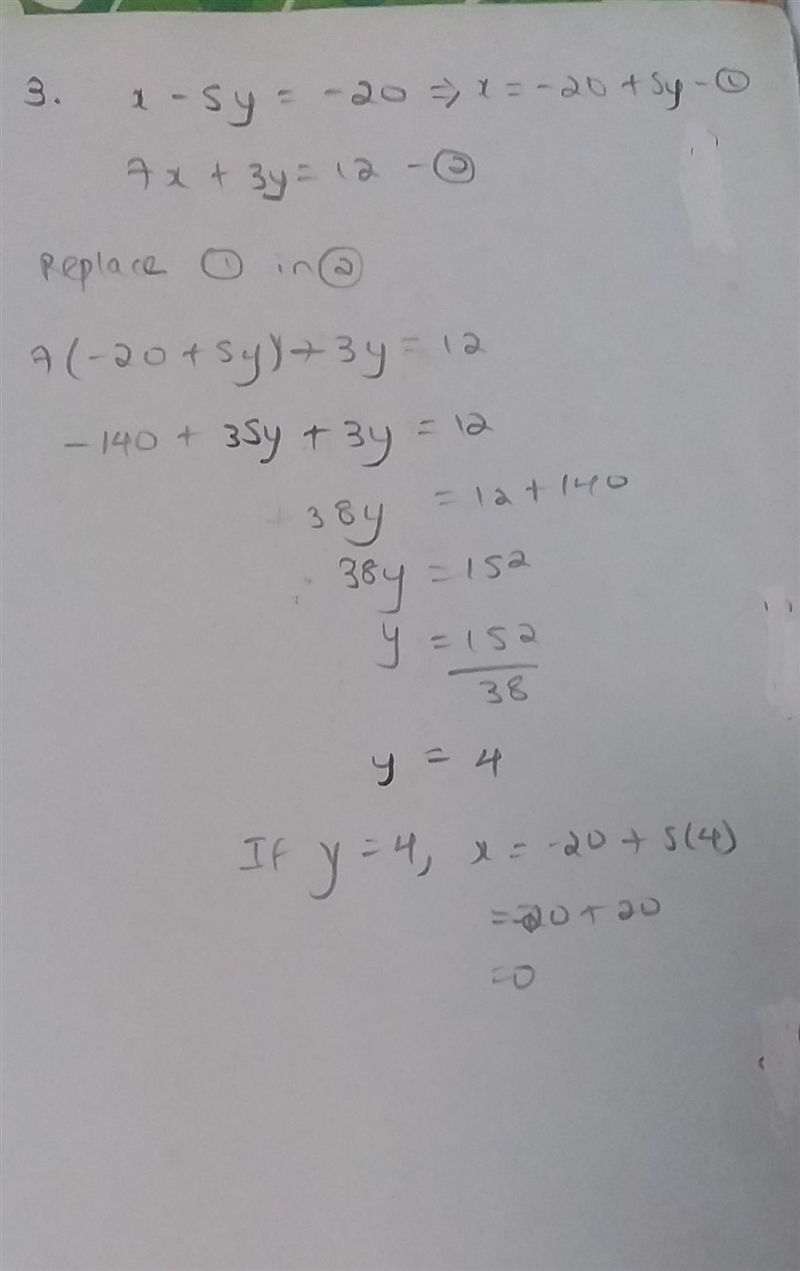 3. x - 5y = -20 => x = -20 + 5y - ①
7x + 3y = 12 - ②
Replace ① in ②
7(-20 + 5y) + 3y = 12
-140 + 35y + 3y = 12
38y = 12 + 140
38y = 152
y = 152
38
y = 4
If y = 4, x = -20 + 5(4)
= -20 + 20
= 0